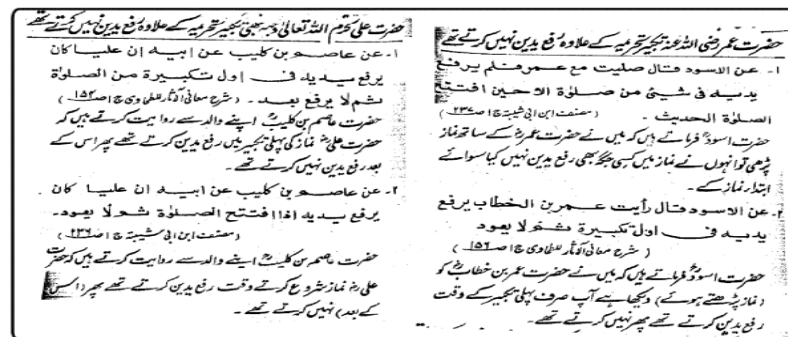 حضرت عمر رضی اللہ عنہ تکبیر تحریمہ کے علاوہ رفع یدین نہیں کرتے تھے
۱- عن الاسود قال صلیت مع عمر فلم یرفع
یدیه فی شیئ من صلوٰۃ الا حین افتتح
الصلوٰۃ الحدیث - (مصنف ابن ابی شیبۃ ج ۱ ص ۲۳۷)
حضرت اسودؒ فرماتے ہیں کہ میں نے حضرت عمرؓ کے ساتھ نماز
پڑھی تو انہوں نے نماز میں کسی جگہ بھی رفع یدین نہیں کیا سوائے
ابتداء نماز کے۔
۲- عن الاسود قال رأیت عمر بن الخطاب یرفع
یدیه فی اول تکبیرة ثم لا یعود
(شرح معانی الآثار للطحاوی ج ۱ ص ۱۵۶)
حضرت اسودؒ فرماتے ہیں کہ میں نے حضرت عمر بن خطابؓ کو
(نماز پڑھتے ہوئے) دیکھا ہے آپ صرف پہلی تکبیر کے وقت
رفع یدین کرتے تھے پھر نہیں کرتے تھے۔
حضرت علی کرم اللہ تعالیٰ وجہہ بھی تکبیر تحریمہ کے علاوہ رفع یدین نہیں کرتے تھے
۱- عن عاصم بن کلیب عن ابیه ان علیا کان
یرفع یدیه فی اول تکبیرة من الصلوٰة
ثم لا یرفع بعد - (شرح معانی الآثار للطحاوی ج ۱ ص ۱۵۴)
حضرت عاصم بن کلیبؒ اپنے والد سے روایت کرتے ہیں کہ
حضرت علیؓ نماز کی پہلی تکبیر میں رفع یدین کرتے تھے پھر اس کے
بعد رفع یدین نہیں کرتے تھے۔
۲- عن عاصم بن کلیب عن ابیه ان علیا کان
یرفع یدیه اذا افتتح الصلوٰة ثم لا یعود-
(مصنف ابن ابی شیبۃ ج ۱ ص ۲۳۶)
حضرت عاصم بن کلیبؒ اپنے والد سے روایت کرتے ہیں کہ حضرت
علیؓ نماز شروع کرتے وقت رفع یدین کرتے تھے پھر (اس
کے بعد) نہیں کرتے تھے۔